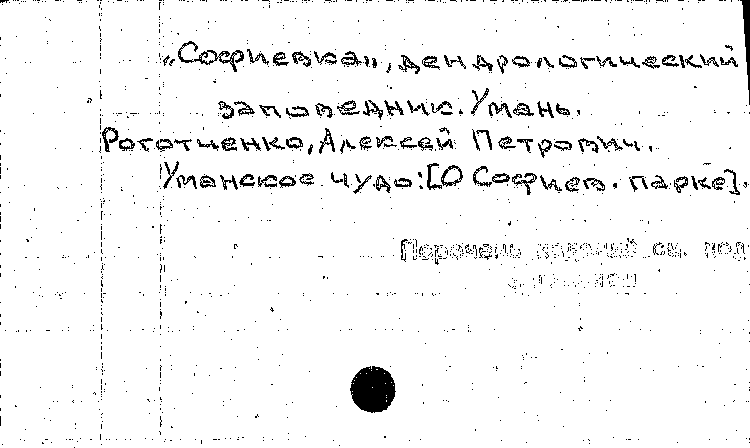 „Софиевка", дендрологический
заповедник. Умань.
Роготченко, Алексей Петрович.
Уманское чудо: [О Софиев. парке].
Перечень изданий см. под